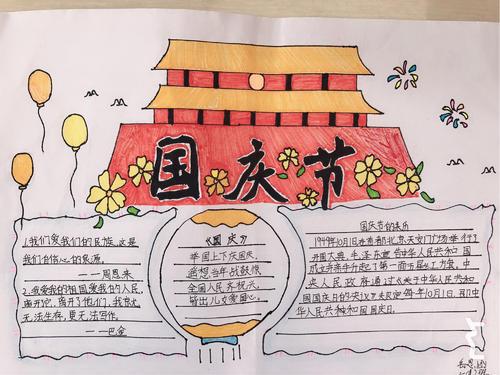 国庆节
1.我们爱我们的民族,这是
我们自信心的源泉。
——周恩来
2.我爱我的祖国,爱我的人民,
离开它,离开了他们,我就
无法生存,更无法写作。
——巴金
《国庆》
举国上下庆国庆,
遥想当年战鼓惊。
全国人民齐祝
儿女爱国心。
国庆节的来历
1949年10月1日在首都北京天安门广场举行了
开国大典,毛泽东宣告中华人民共和国
成立并亲手升起了第一面五星红旗。中
央人民政府通过《关于中华人民共和
国国庆日的决议》规定每年10月1日,即中
华人民共和国国庆日。